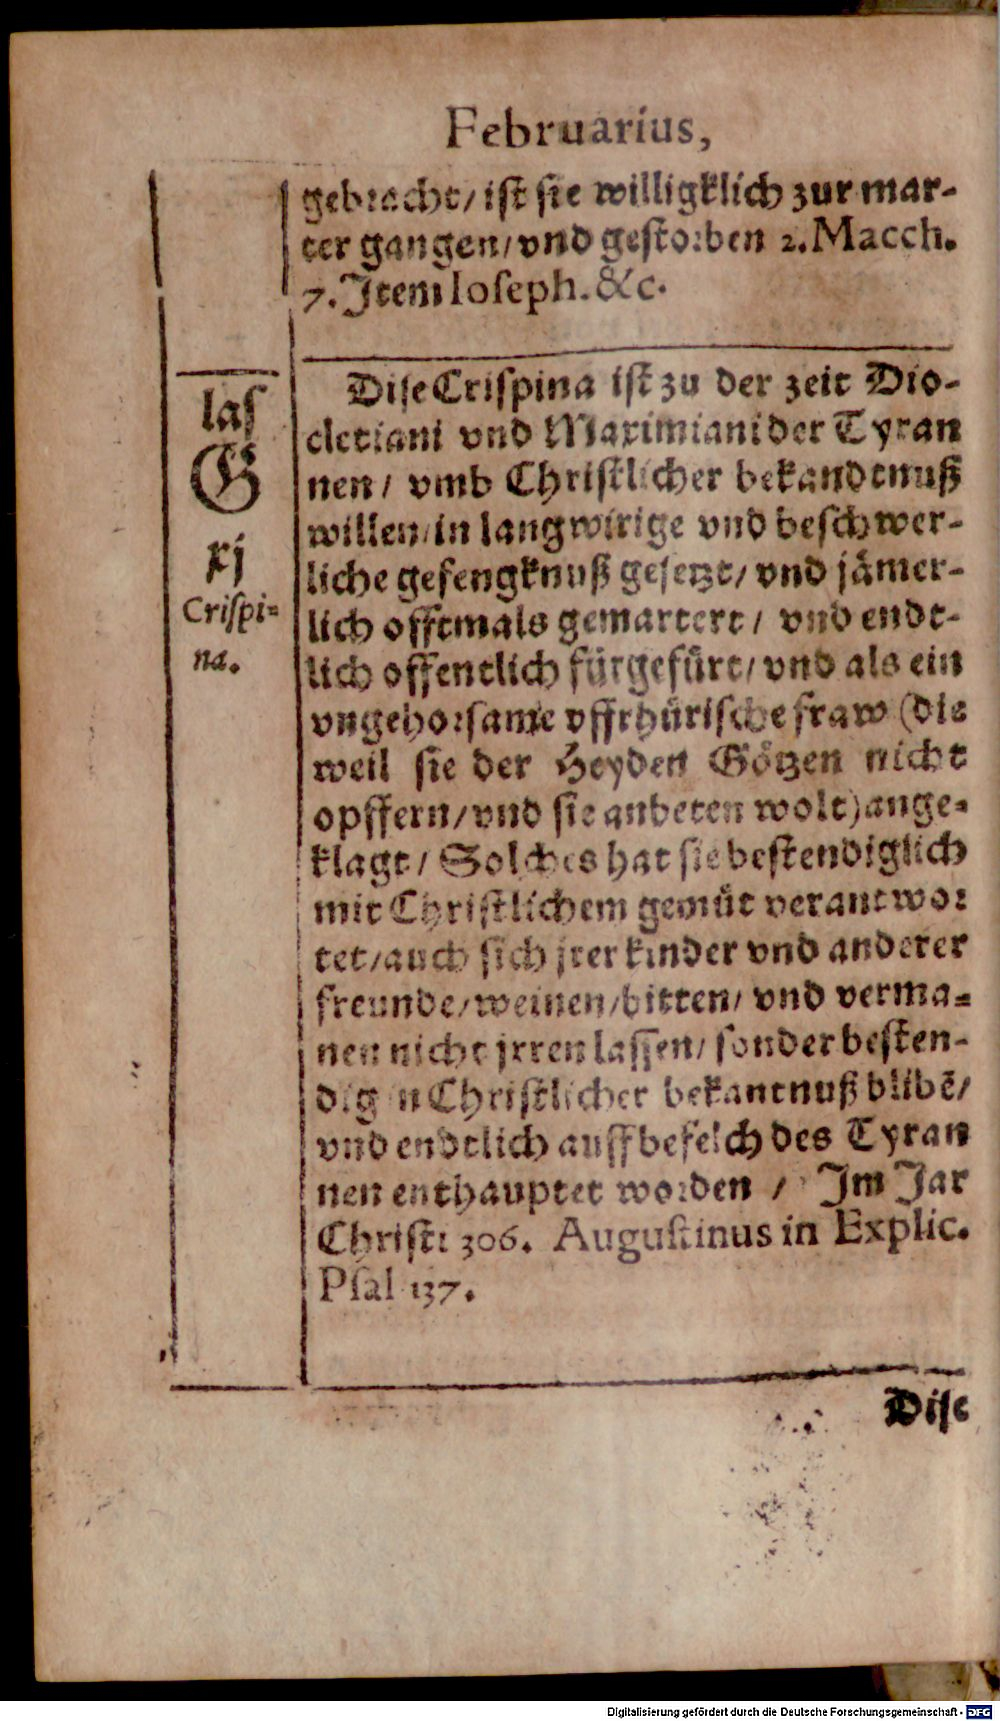 Februarius,
gebracht/ iſt ſie willigklich zur mar-
ter gangen/ vnd geſtorben 2. Macch.
7. Item Ioſeph. &c.
laſ
G
xj
Criſpi-
na.
Diſe Criſpina iſt zu der zeit Dio-
cletiani vnd Maximiani der Tyran
nen/ vmb Chriſtlicher bekandtnuß
willen/ in langwirige vnd beſchwer-
liche gefengknuß geſetzt/ vnd jämer-
lich offtmals gemartert/ vnd endt-
lich offentlich fürgefürt/ vnd als ein
vngehorſame vffrhüriſche fraw (die
weil ſie der Heyden Götzen nicht
opffern/ vnd ſie anbeten wolt) ange-
klagt/ Solches hat ſie beſtendiglich
mit Chriſtlichem gemüt verantwor
tet/ auch ſich jrer kinder vnd anderer
freunde/ weinen/ bitten/ vnd verma-
nen nicht jrren laſſen/ ſonder beſten-
dig in Chriſtlicher bekantnuß blibẽ/
vnd endtlich auff befelch des Tyran
nen enthauptet worden / Im Jar
Chriſti 306. Auguſtinus in Explic.
Pſal 137.
Diſe
Digitalisierung gefördert durch die Deutsche Forschungsgemeinschaft - DFG